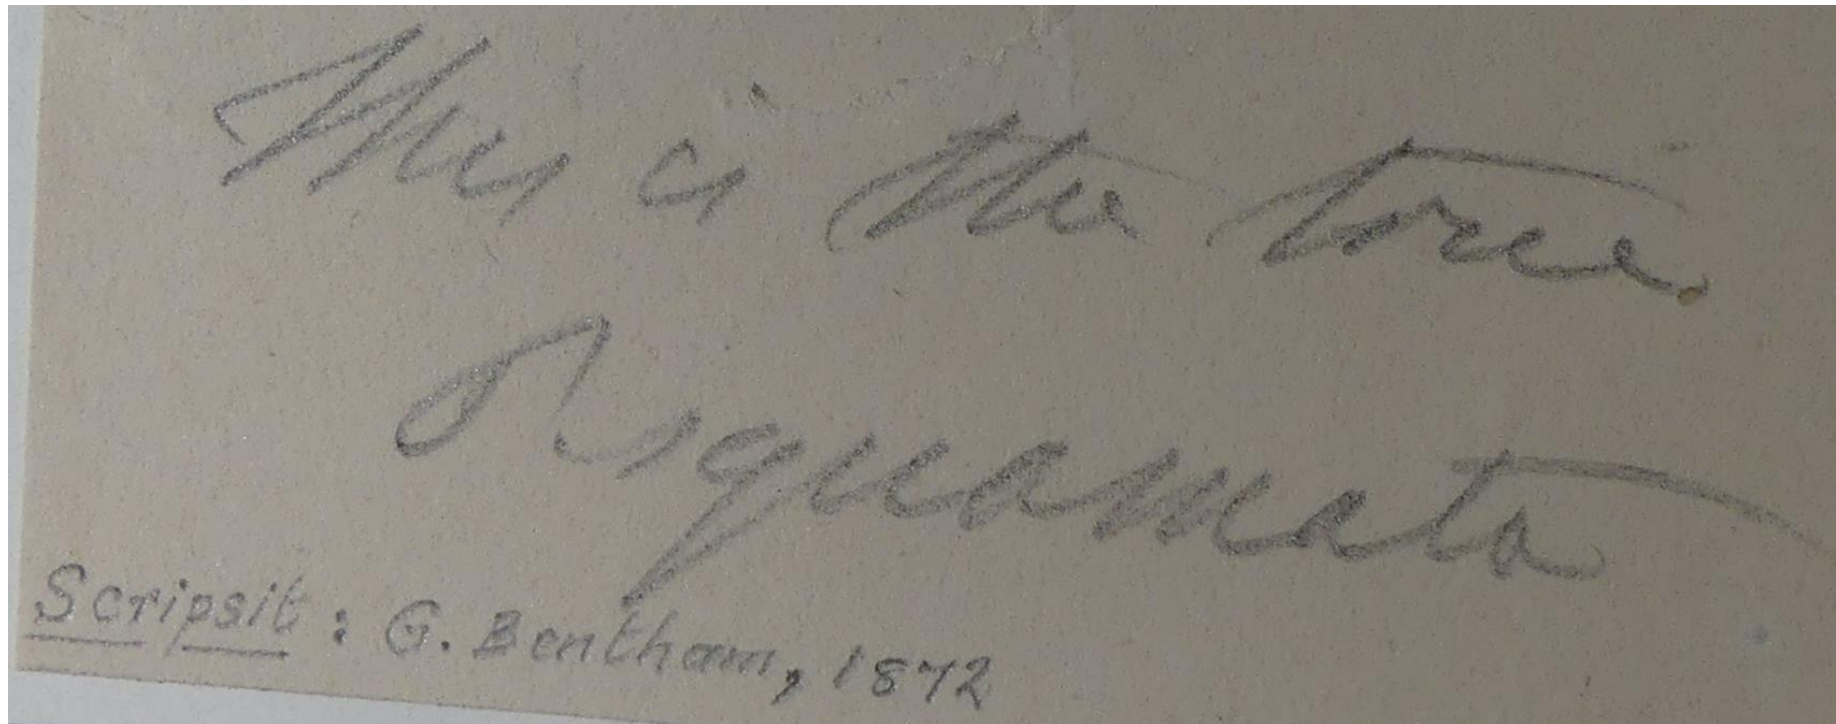 This is the true
A squamata
Scripsit: G. Bentham, 1872